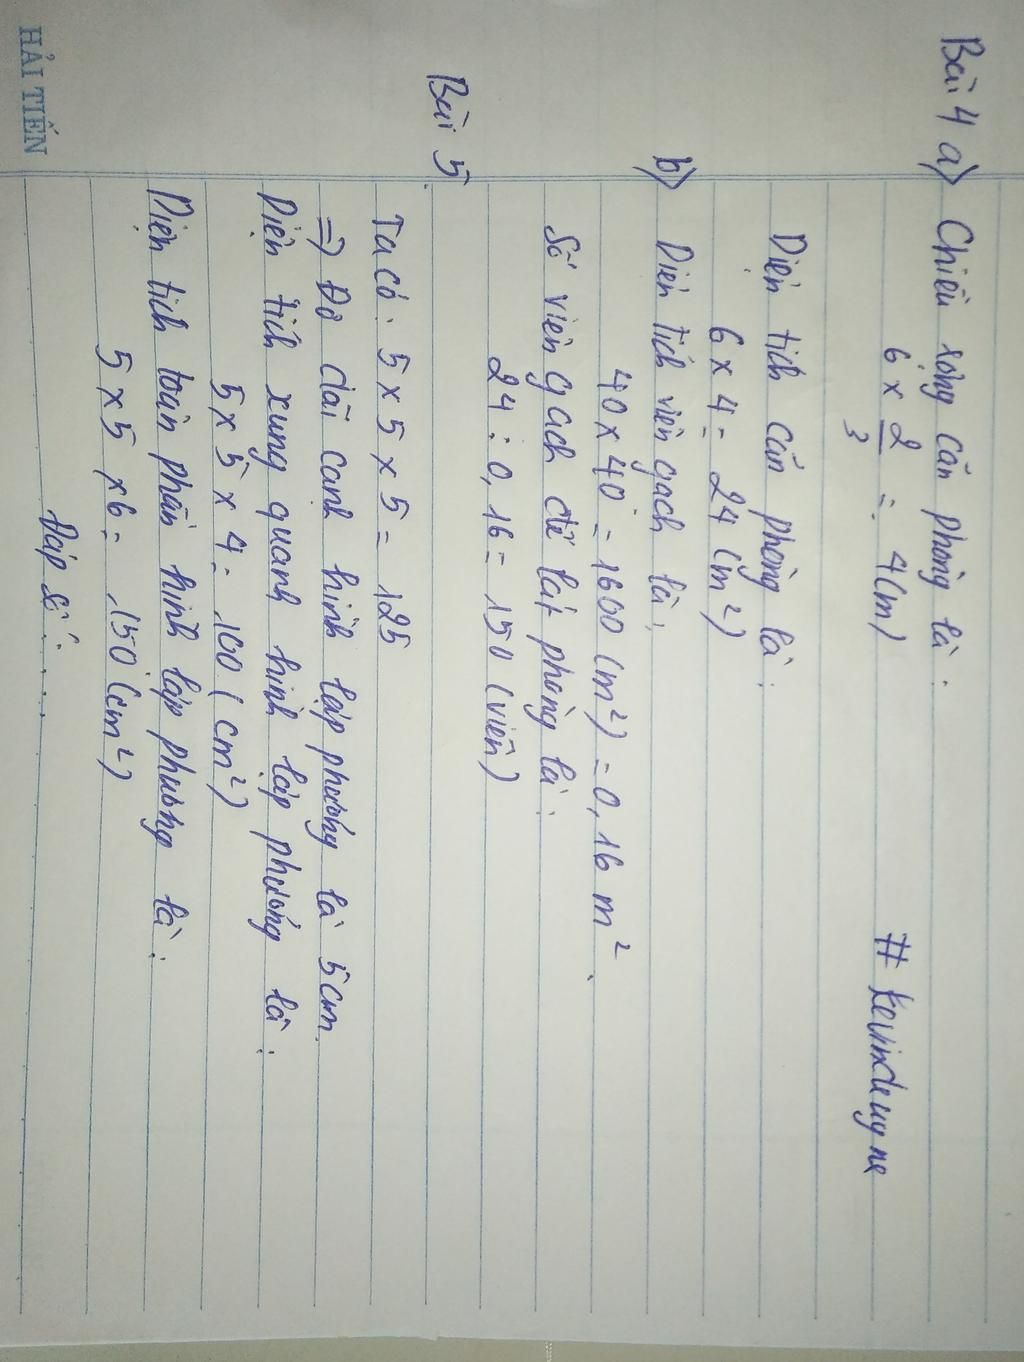 Bài 4 a) Chiều rộng căn phòng là:
6 x 2/3 = 4 (m)
# kevindeyne
Diện tích căn phòng là:
6 x 4 = 24 (m²)
b) Diện tích viên gạch là:
40 x 40 = 1600 (m²) = 0,16 m².
Số viên gạch để lát phòng là:
24 : 0,16 = 150 (viên)
Bài 5.
Ta có: 5 x 5 x 5 = 125
=> Độ dài cạnh hình lập phương là 5cm.
Diện tích xung quanh hình lập phương là:
5 x 5 x 4 = 100 (cm²)
Diện tích toàn phần hình lập phương là:
5 x 5 x 6 = 150 (cm²)
Đáp số:....
HẢI TIẾN